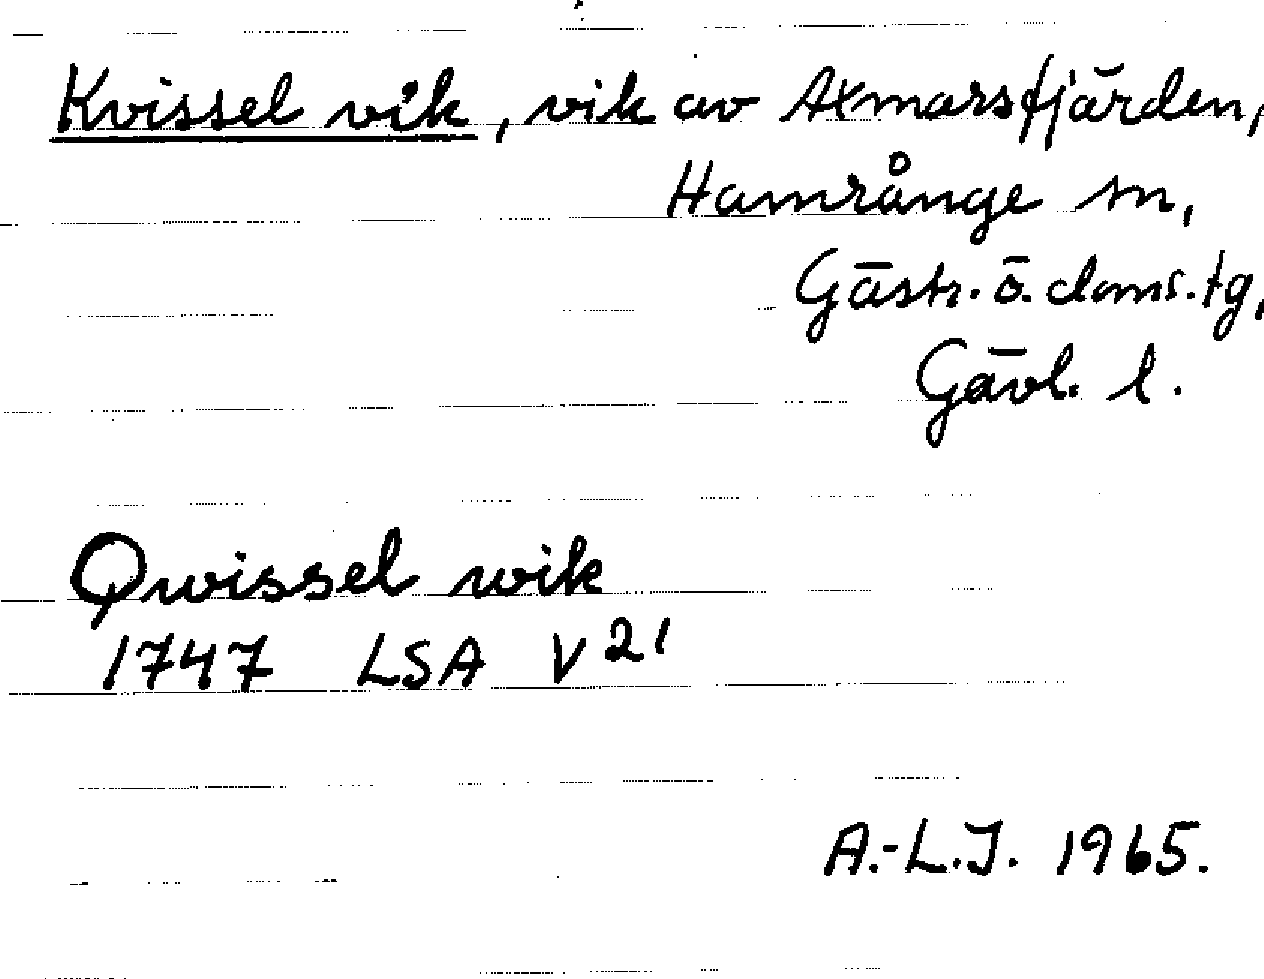 Kvissel vik, vik av Axmarsfjärden,
Hamrånge sn,
Gästr. ö. doms. tg,
Gävl. l.
Qwissel wik
1747 LSA V 21
A.-L.J. 1965.